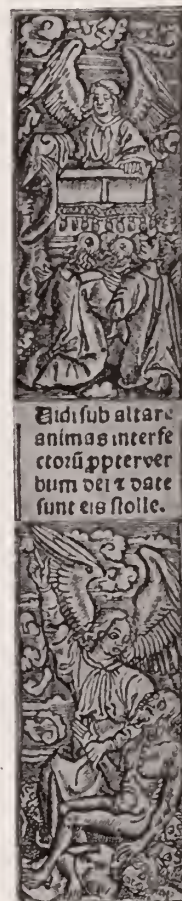 Uidi sub altare
animas interfe
ctoꝝ ꝓpter ver
bum dei ⁊ date
sunt eis stolle.